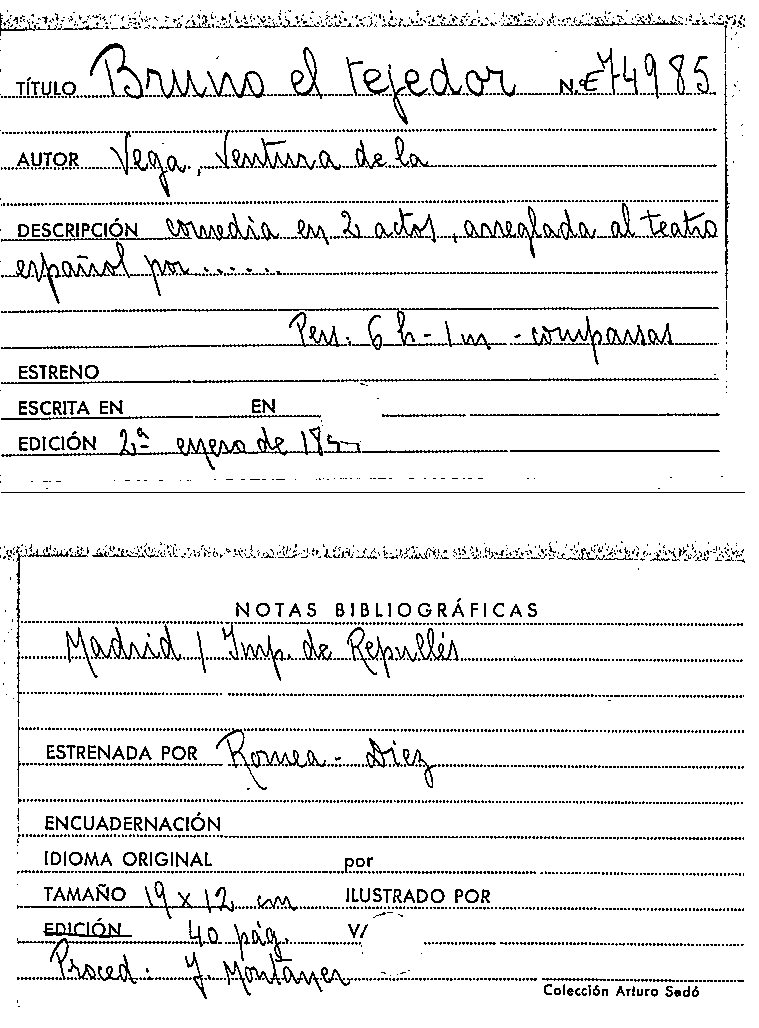 TÍTULO Bruno el tejedor N.º 74985
AUTOR Vega, Ventura de la
DESCRIPCIÓN comedia en 2 actos, arreglada al teatro
español por......
Pers: 6 h - 1 m - comparsas
ESTRENO
ESCRITA EN EN
EDICIÓN 2ª enero de
NOTAS BIBLIOGRÁFICAS
Madrid / Imp. de Repullés
ESTRENADA POR Romea - Diez
ENCUADERNACIÓN
IDIOMA ORIGINAL por
TAMAÑO 19 x 12 cm ILUSTRADO POR
EDICIÓN 40 pág. V/
Proced. J. Montaner
Colección Arturo Sedó